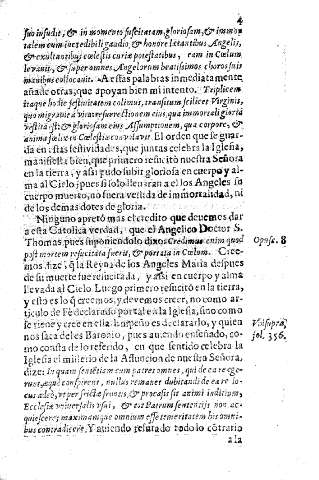 4
suo indusit, & in momento suscitatam, gloriosam, & immor
talem cum incredibili gaudio, & honore letantibus Angelis,
& exultantibus cœlestis curiæ potestatibus, eam in Cœlum
levavit, & super omnes Angelorum beatissimos choros suis
manibus collocavit. A estas palabras inmediatamente
añade otras, que apoyan bien mi intento. Triplicem
itaque hodie festivitatem colimus, transitum scilicet Virginis,
quo migravit à vita resurrectionem eius, qua immortali gloria
vestita est & gloriosam eius Assumptionem, qua corpore, &
anima felix in Cœlestia conscendit. El orden que se guar
da en estas festividades, que juntas celebra la Iglesia,
manifiesta bien, que primero resucitò nuestra Señora
en la tierra, y assi pudo subir gloriosa en cuerpo y al-
ma al Cielo; pues si solo llevaran a el los Angeles su
cuerpo muerto, no fuera vestida de immortalidad, ni
de los demas dotes de gloria.
Ninguno apretó mas el credito que devemos dar
a esta Catolica verdad, que el Angelico Doctor S.
Thomas pues suponiendolo dixo: Credimus enim quod
post mortem resuscitata fuerit, & portata in Cœlum. Cree-
mos, dize, q̃ la Reyna de los Angeles Maria despues
de su muerte fue resucitada, y assi en cuerpo y alma
llevada al Cielo Luego primero resucitò en la tierra,
y esto es lo q̃ creemos, y devemos creer, no como ar-
ticulo de Fè declarado por tal e a la Iglesia, sino como
se tiene y cree en ella.
nos saca de les Baronio, pues aviendo enseñado, co-
mo consta de lo referido, en que sentido celebra la
Iglesia el misterio de la Assuncion de nuestra Señora,
dize: In quam sententiam cum patres omnes, qui de ea re ege-
runt, æque conspirent, nullus remanet dubitandi de ea re lo-
cus
Ecclesiæ universalis usui, & est Patrum sententijs non ac-
quiescere; maximamque omnium esse temeritatem his omni-
bus contradicere. Y aviendo refutado todo lo cōtrario
a la
Opusc. 8
Vbi supra,
fol. 356.